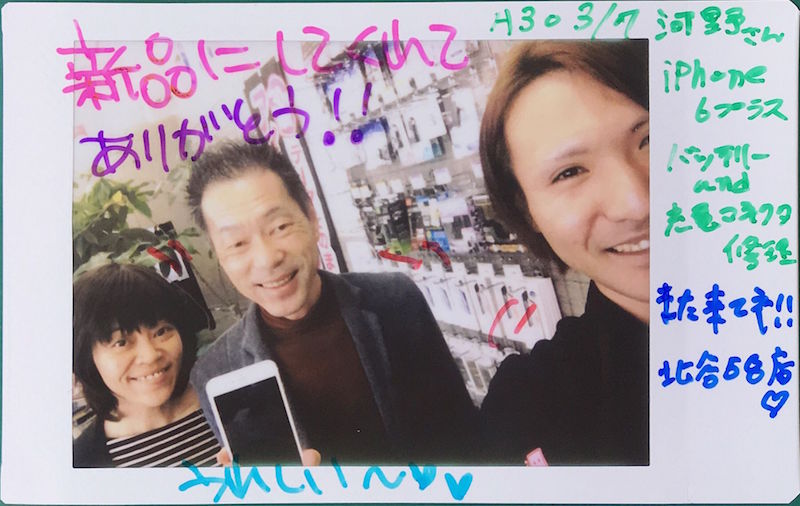 新品にしてくれて
ありがとう!!
H30 3/7 河野さん
iPhone
6プラス
バッテリー
and
充電コネクタ
修理
また来てネ!!
北谷58店♡
うれしい〜♥♥